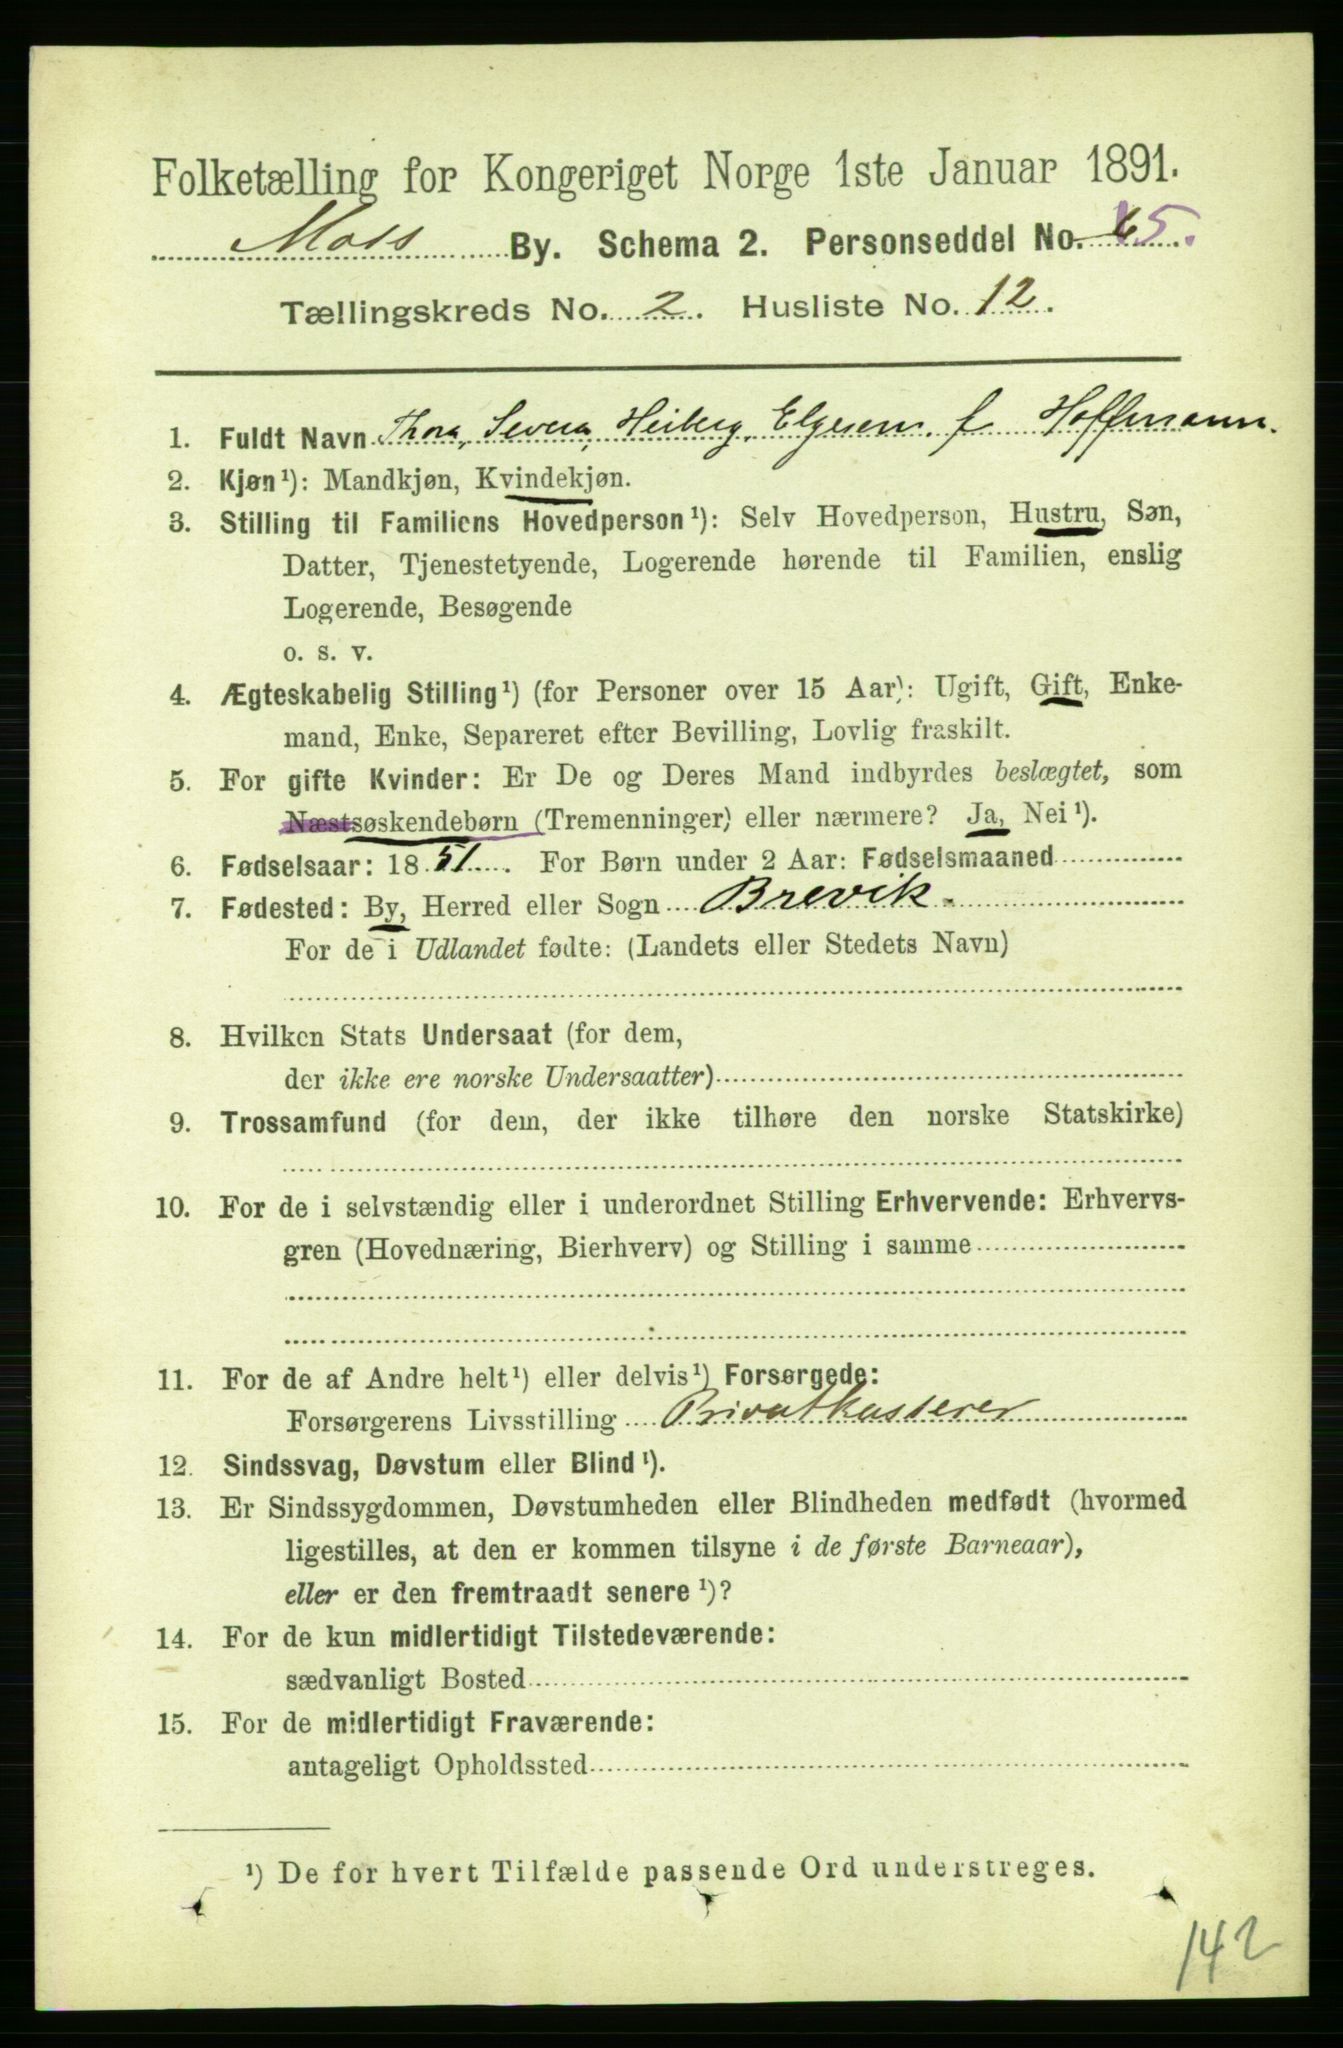 Folketælling for Kongeriget Norge 1ste Januar 1891.
Moss By. Schema 2. Personseddel No. 6 5.
Tællingskreds No. 2. Husliste No. 12.
1. Fuldt Navn Thora, Severa, Heiberg, Elgesem. f. Hoffmann.
2. Kjøn¹): Mandkjøn, Kvindekjøn.
3. Stilling til Familiens Hovedperson¹): Selv Hovedperson, Hustru, Søn,
Datter, Tjenestetyende, Logerende hørende til Familien, enslig
Logerende, Besøgende
o. s. v.
4. Ægteskabelig Stilling¹) (for Personer over 15 Aar): Ugift, Gift, Enke-
mand, Enke, Separeret efter Bevilling, Lovlig fraskilt.
5. For gifte Kvinder: Er De og Deres Mand indbyrdes beslægtet, som
Næstsøskendebørn (Tremenninger) eller nærmere? Ja, Nei¹).
6. Fødselsaar: 1851. For Børn under 2 Aar: Fødselsmaaned
7. Fødested: By, Herred eller Sogn Brevik.
For de i Udlandet fødte: (Landets eller Stedets Navn)
8. Hvilken Stats Undersaat (for dem,
der ikke ere norske Undersaatter)
9. Trossamfund (for dem, der ikke tilhøre den norske Statskirke)
10. For de i selvstændig eller i underordnet Stilling Erhvervende: Erhvervs-
gren (Hovednæring, Bierhverv) og Stilling i samme
11. For de af Andre helt¹) eller delvis¹) Forsørgede:
Forsørgerens Livsstilling Privatkasserer
12. Sindssvag, Døvstum eller Blind¹).
13. Er Sindssygdommen, Døvstumheden eller Blindheden medfødt (hvormed
ligestilles, at den er kommen tilsyne i de første Barneaar),
eller er den fremtraadt senere¹)?
14. For de kun midlertidigt Tilstedeværende:
sædvanligt Bosted
15. For de midlertidigt Fraværende:
antageligt Opholdssted
¹) De for hvert Tilfælde passende Ord understreges.
142